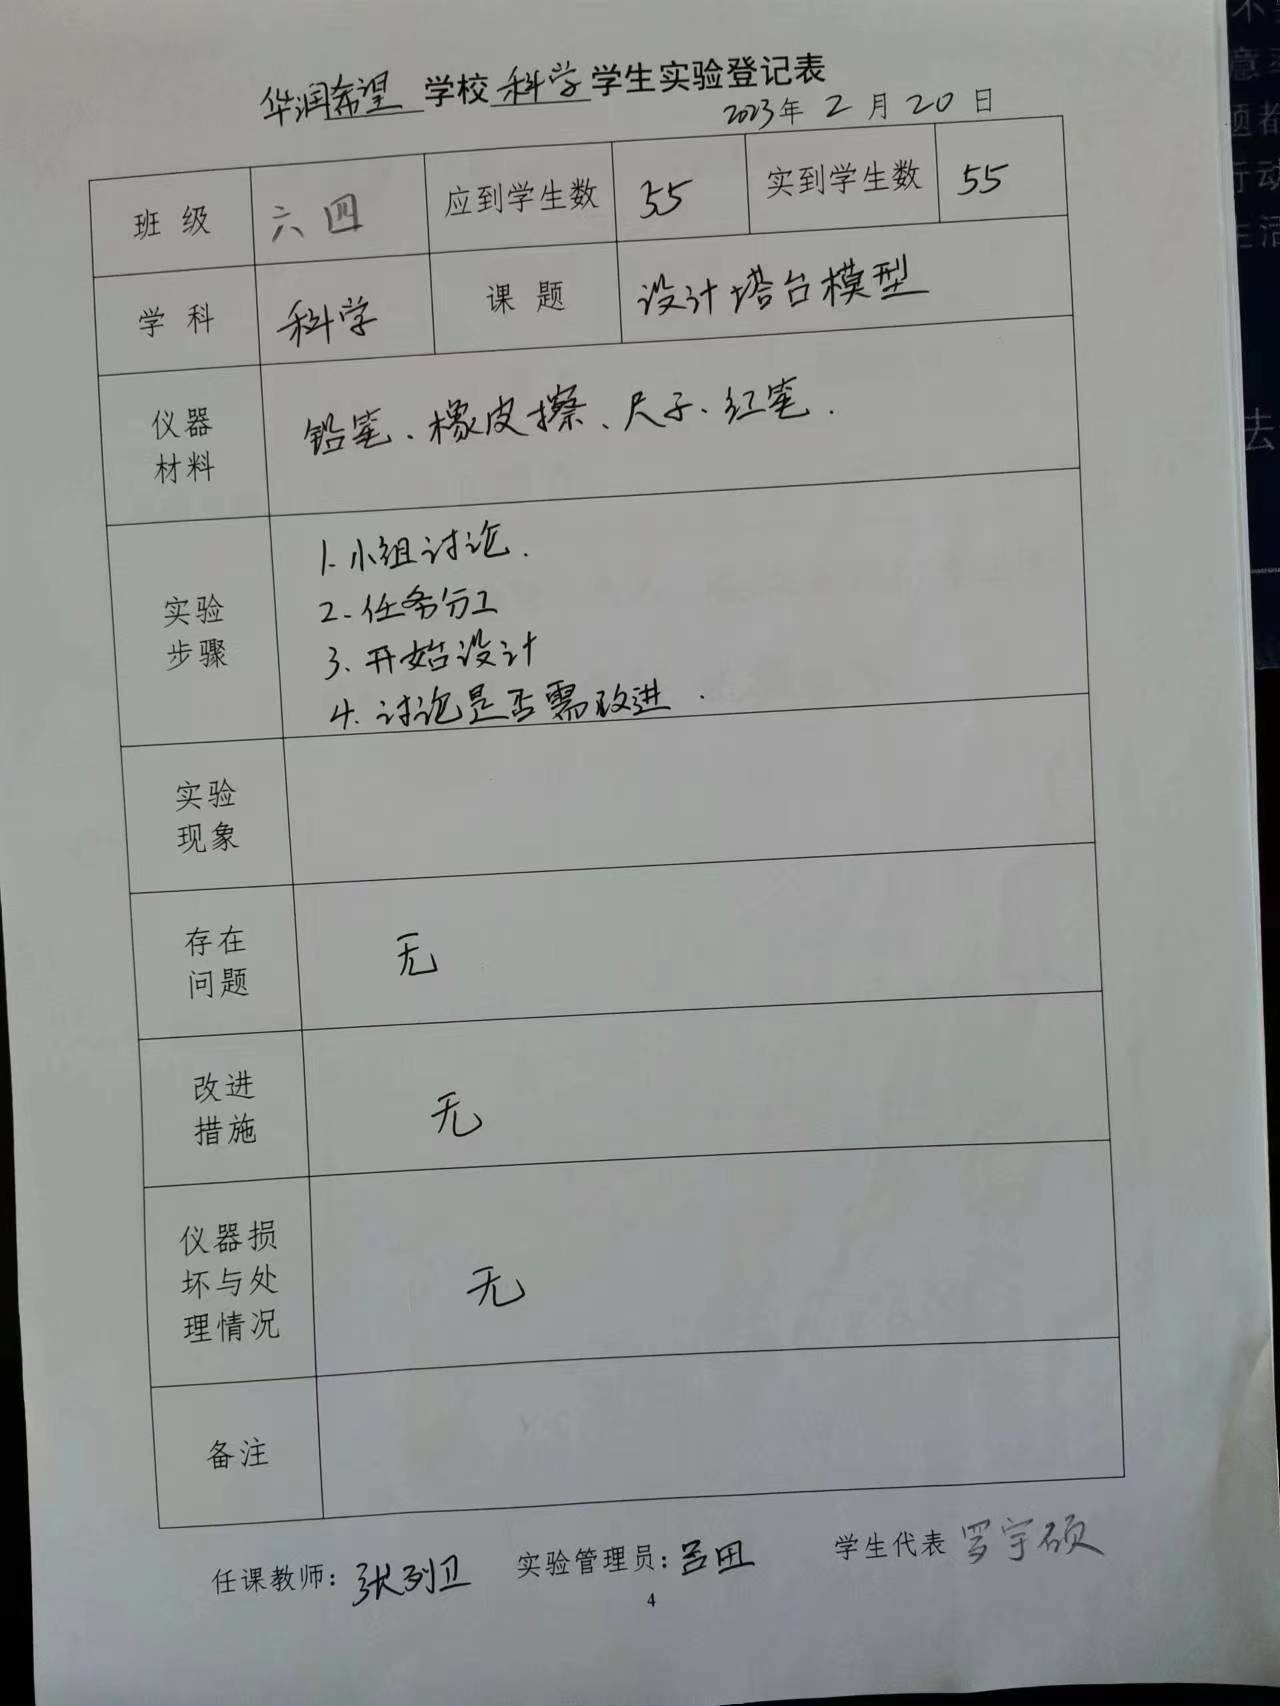 华润希望 学校 科学 学生实验登记表
2023年 2 月 20 日
班 级 六四 应到学生数 55 实到学生数 55
学 科 科学 课 题 设计塔台模型
仪器
材料
铅笔、橡皮擦、尺子、红笔.
实验
步骤
1. 小组讨论.
2. 任务分工
3. 开始设计
4. 讨论是否需改进.
实验
现象
存在
问题
无
改进
措施
无
仪器损
坏与处
理情况
无
备注
任课教师：张列卫 实验管理员：吕田 学生代表 罗宇硕
4